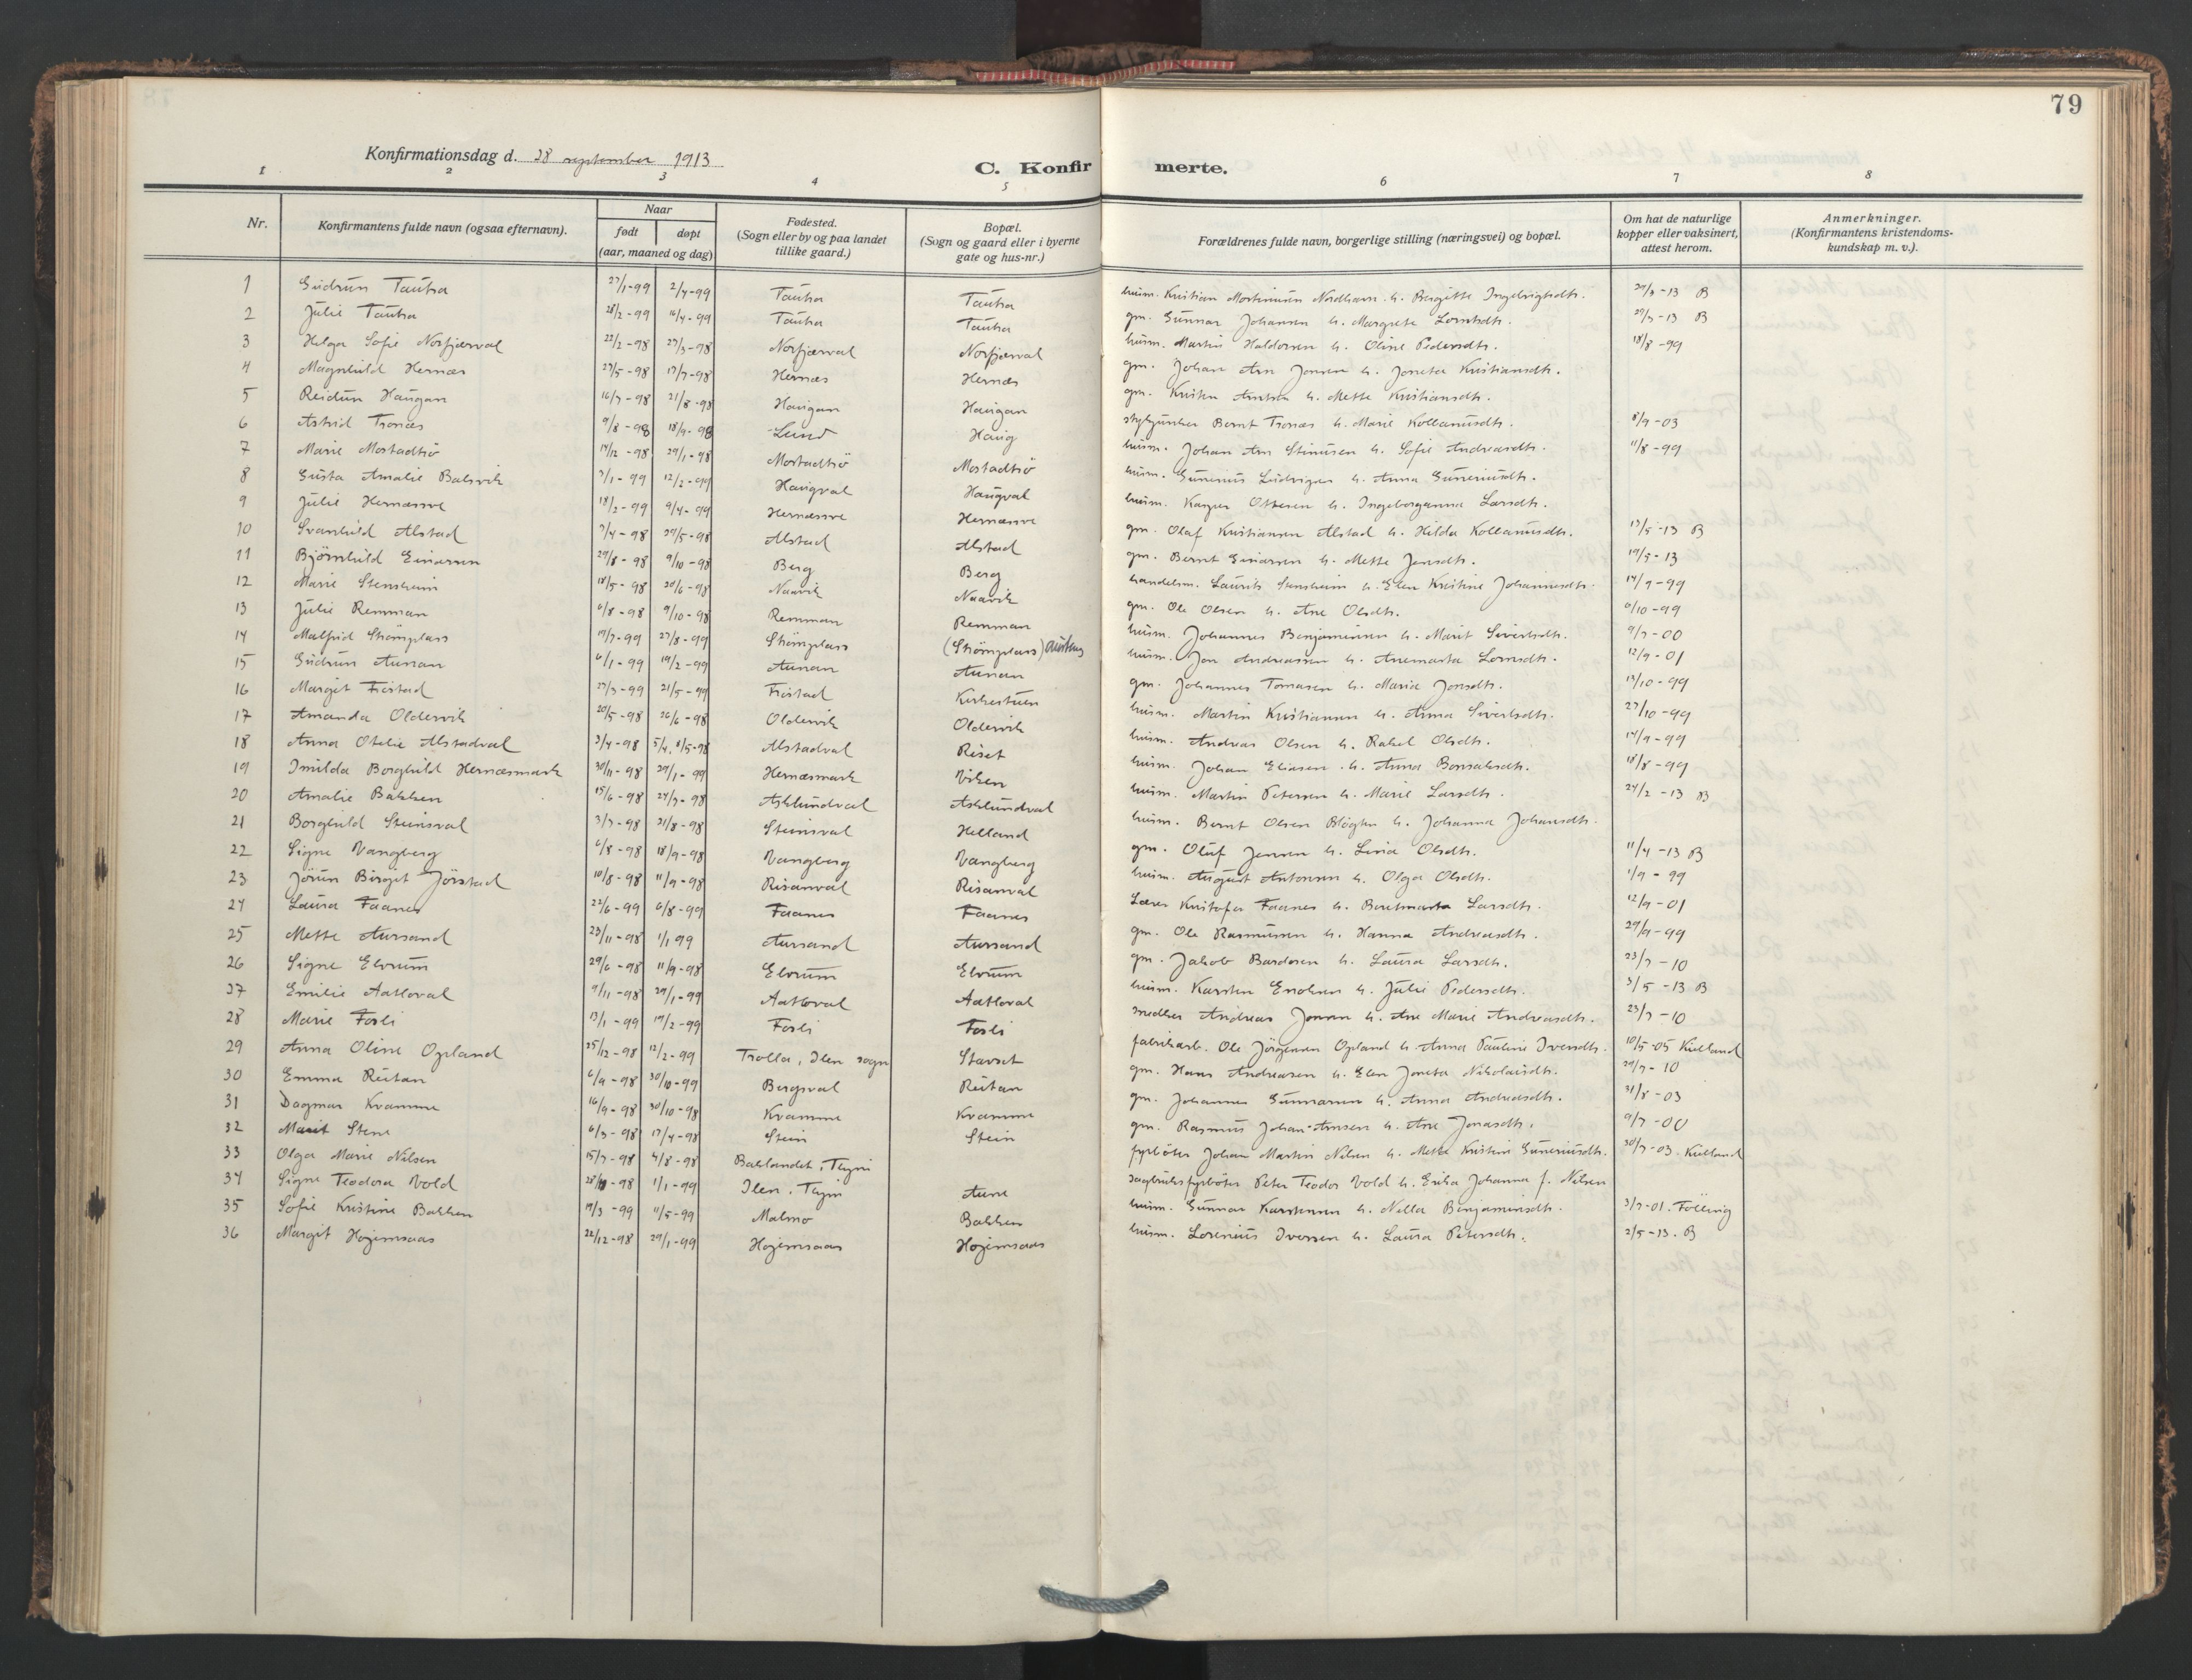 79
Konfirmationsdag d. 28 september 1913
C. Konfir merte.
1 2 3 4 5 6 7 8
Nr. Konfirmantens fulde navn (ogsaa efternavn). Naar født døpt (aar, maaned og dag) Fødested. (Sogn eller by og paa landet tillike gaard.) Bopæl. (Sogn og gaard eller i byerne gate og hus-nr.) Forældrenes fulde navn, borgerlige stilling (næringsvei) og bopæl. Om hat de naturlige kopper eller vaksinert, attest herom. Anmerkninger. (Konfirmantens kristendomskundskap m. v.).
1 Gudrun Tautra 27/1-99 2/4-99 Tautra Tautra husm. Kristian Mortinusen Nordhavn h. Bergitte Ingebrigtsdtr. 29/3-13 B
2 Julie Tautra 28/2-99 16/4-99 Tautra Tautra gm. Gunnar Johansen h. Margrete Lorntsdtr. 29/3-13 B
3 Helga Sofie Norfjærval 22/2-98 27/3-98 Norfjærval Norfjærval husm. Martin Haldorsen h. Oline Pedersdtr. 18/8-99
4 Magnhild Hernæs 27/5-98 17/7-98 Hernæs Hernæs gm. Johan Arn Jonsen h. Joneta Kristiansdtr.
5 Reidun Haugan 16/7-98 21/8-98 Haugan Haugan gm. Kristen Arntsen h. Mette Kristiansdtr.
6 Astrid Tronæs 9/8-98 18/9-98 Lund Haug Bernt Tronæs h. Marie Kollanusdtr. 8/9-03
7 Marie Mostadtrø 14/12-98 29/1-98 Mostadtrø Mostadtrø husm. Johan Arn Stinusen h. Sofie Andreasdtr. 11/8-99
8 Gusta Amalie Balsvik 3/1-99 12/2-99 Haugval Haugval husm. Gunerius Ludvigsen h. Anna Guneriusdtr.
9 Julie Hernæsøre 18/2-99 9/4-99 Hernæsøre Hernæsøre husm. Kasper Ottesen h. Ingeborganna Larsdtr.
10 Svanhild Alstad 7/4-98 29/5-98 Alstad Alstad gm. Olaf Kristiansen Alstad h. Hilda Kollanusdtr. 13/5-13 B
11 Bjørnhild Einarsen 29/8-98 9/10-98 Berg Berg gm. Bernt Einarsen h. Mette Jensdtr. 19/5-13
12 Marie Stensheim 18/5-98 20/6-98 Naavik Naavik handelsm. Laurits Stensheim h. Elen Kristine Johannesdtr. 14/9-99
13 Julie Remman 6/8-98 9/10-98 Remman Remman gm. Ole Olsen h. Ane Olsdtr. 6/10-99
14 Malfrid Strømplass 17/7-99 27/8-99 Strømplass (Strømplass) husm. Johannes Benjaminsen h. Marit Sivertsdtr. 9/7-00
15 Gudrun Aunan 6/1-99 19/2-99 Aunan Aunan husm. Jon Andreassen h. Anemarta Lornsdtr. 12/9-01
16 Margit Fristad 27/3-99 21/5-99 Fristad Kirkestuen gm. Johannes Tomasen h. Maria Jonsdtr. 13/10-99
17 Amanda Oldervik 20/5-98 26/6-98 Oldervik Oldervik husm. Martin Kristiansen h. Anna Sivertsdtr. 27/10-99
18 Anna Otelie Alstadval 3/4-98 5/4, 8/5-98 Alstadval Riset husm. Andreas Olsen h. Rakel Olsdtr. 14/9-99
19 Imilda Borghild Hernæsmark 30/11-98 29/1-99 Hernæsmark Viken husm. Johan Eliasen h. Anna Bonsaksdtr. 18/8-99
20 Amalie Bakken 15/6-98 24/7-98 Asklundval Asklundval husm. Martin Petersen h. Marie Larsdtr. 24/2-13 B
21 Borghild Steinsval 3/7-98 21/8-98 Steinsval Helland husm. Bernt Olsen h. Johanna Johansdtr.
22 Signe Vangberg 6/8-98 18/9-98 Vangberg Vangberg gm. Oluf Jensen h. Lina Olsdtr. 11/4-13 B
23 Jørun Birgit Jørstad 10/8-98 11/9-98 Risanval Risanval husm. August Antonsen h. Olga Olsdtr. 1/9-99
24 Laura Faanes 22/6-99 6/8-99 Faanes Faanes Lærer Kristofer Faanes h. Beretmarta Larsdtr. 12/9-01
25 Mette Aursand 23/11-98 1/1 99 Aursand Aursand gm. Ole Rasmussen h. Hanna Andreasdtr. 29/9-99
26 Signe Elvrum 29/6-98 11/9-98 Elvrum Elvrum gm. Jakob Bardosen h. Laura Larsdtr. 23/7-10
27 Emilie Aatloval 9/11-98 29/1-99 Aatloval Aatloval husm. Karsten Enoksen h. Julie Pedersdtr. 3/5-13 B
28 Marie Fosli 13/1-99 19/2-99 Fosli Fosli snedker Andreas Jonsen h. Ane Marie Andreasdtr. 23/7-10
29 Anna Oline Opland 25/12-98 12/2-99 Trolla, Ilen sogn Stavset fabrikarb. Ole Jørgensen Opland h. Anna Pauline Iversdtr. 10/5-05
30 Emma Reitan 6/9-98 30/10-99 Bergsval Reitan gm. Hans Andreasen h. Elen Joneta Nikolaisdtr. 29/7-10
31 Dagmar Kvamme 16/9-98 30/10-98 Kvamme Kvamme gm. Johannes Gunnarsen h. Anna Andreasdtr. 31/8-03
32 Marit Stene 6/3-98 17/4-98 Stein Stein gm. Rasmus Johan Arnsen h. Ane Jonasdtr. 9/7-00
33 Olga Marie Nilsen 15/7-98 4/8-98 Baklandet, Thjm fyrbøter Johan Martin Nilsen h. Mette Kristine Guneriusdtr. 30/7-03
34 Signe Teodora Vold 28/10-98 1/1-99 Ilen, Thjm Aune sagbruksfyrbøter Peter Teodor Vold h. Erika Johanna f. Nilsen
35 Sofie Kristine Bakken 19/3-99 11/5-99 Malmo Bakken husm. Gunnar Karstensen h. Nella Benjaminsdtr. 3/7-01. Følling
36 Margit Hojemsaas 22/12-98 29/1-99 Hojemsaas Hojemsaas husm. Lorenius Iversen h. Laura Petersdtr. 2/5-13. B